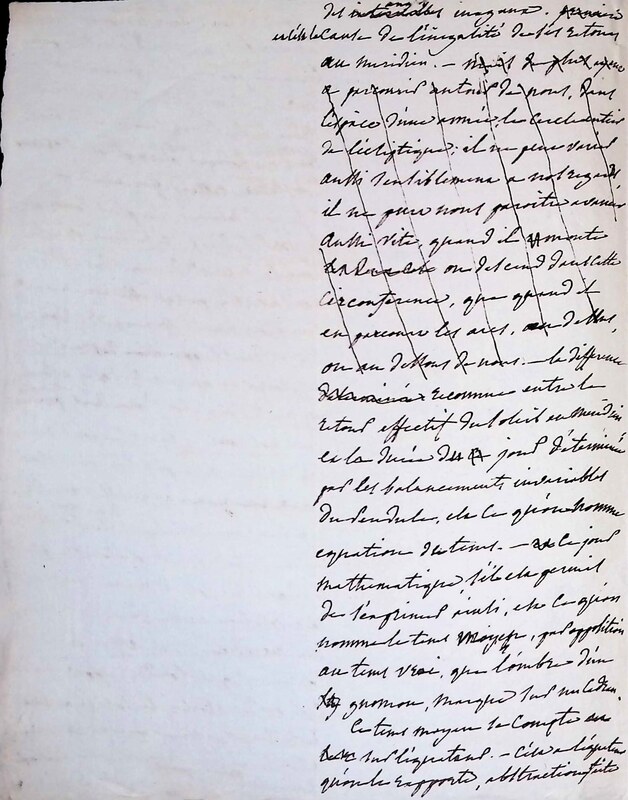 inegaux.
est la cause de l'inegalité de ses retours
au meridien. — mais de plus ayant
a parcourir autour de nous, dans
l'espace d'une année, le cercle entier
de l'écliptique; il ne peut varier
aussi sensiblement a nos regards,
il ne peut nous paroitre avancer
aussi vite, quand il monte
ou descend dans cette
circonference, que quand il
en parcourt les arcs, au dessus,
ou au dessous de nous. — la difference
reconnue entre le
retour effectif du soleil au meridien
et la durée du jour determinée
par les balancements invariables
du pendule, est ce qu'on nomme
equation du tems. — ce jour
mathematique, s'il est permis
de s'exprimer ainsi, est ce qu'on
nomme le tems moyen, par opposition
au tems vrai, que l'ombre d'un
gnomon, marque sur un cadran.
Ce tems moyen se compte
sur l'equateur. — c'est a l'equateur
qu'on le rapporte, abstraction faite